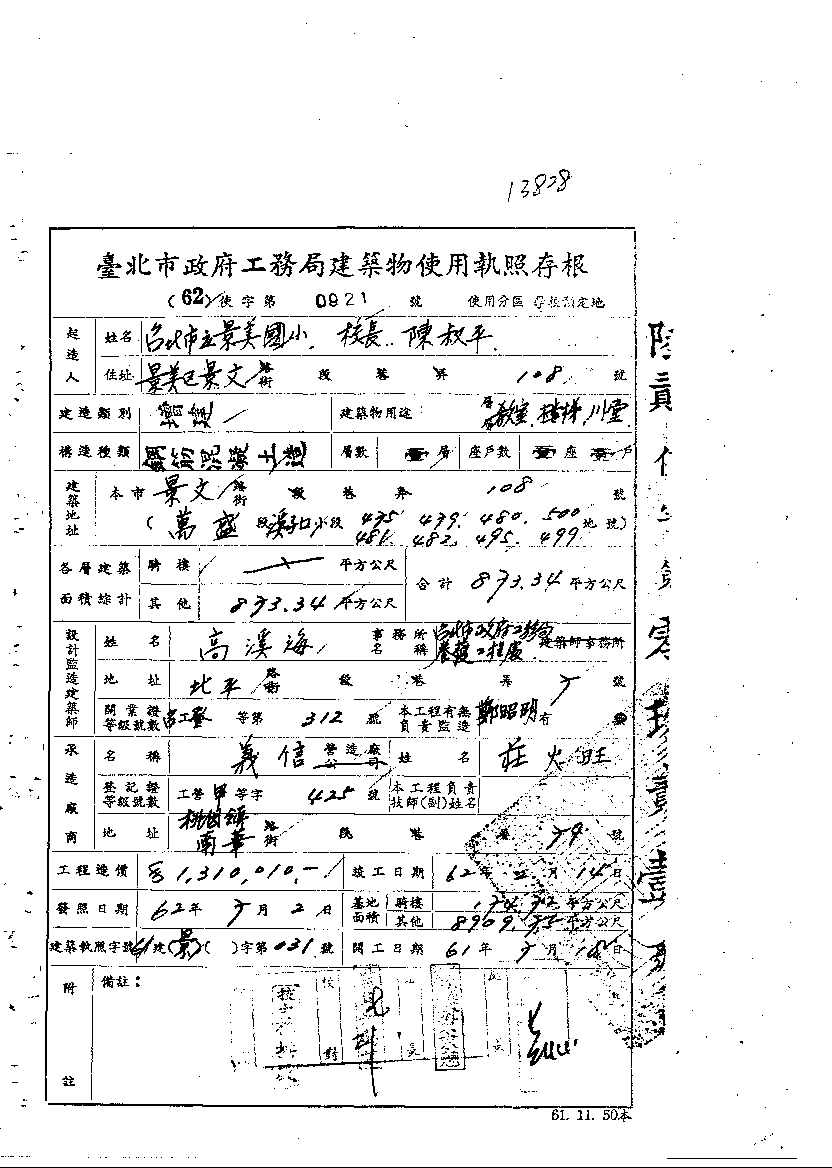 13838
臺北市政府工務局建築物使用執照存根
(62)使字第 0921 號 使用分區 學校預定地
起造人 姓名 台北市立景美國小 校長 陳叔平
住址 景美區景文路街 段 巷 弄 108 號
建造類別 增建 建築物用途 教室 樓梯 川堂
構造種類 鋼筋混凝土造 層數 壹層 座戶數 壹座壹戶
建築地址 本市景文路街 段 巷 弄 108 號
(萬盛段溪子口小段 475. 479. 480. 500 地號)
481. 482. 495. 499
各層建築面積綜計 騎樓 平方公尺 合計 873.34 平方公尺
其他 873.34 平方公尺
設計監造建築師 姓名 高溪海 事務所名稱 台北市政府工務局養護工程處 建築師事務所
地址 北平路街 段 巷 弄 5 號
開業證等級號數 等第 312 號 本工程有無負責監造 鄭昭明 有
承造廠商 名稱 義信營造廠公司 姓名 莊火旺
登記證等級號數 工營甲等字 425 號 本工程負責技師(副)姓名
地址 桃園鎮南華路街 段 巷 弄 79 號
工程造價 1,310,010.- 竣工日期 62年2月14日
發照日期 62年5月2日 基地面積 騎樓 平方公尺
其他 平方公尺
建築執照字號 61建(景)( )字第031號 開工日期 61年5月18日
附註 備註:
校對
長
61. 11. 50本